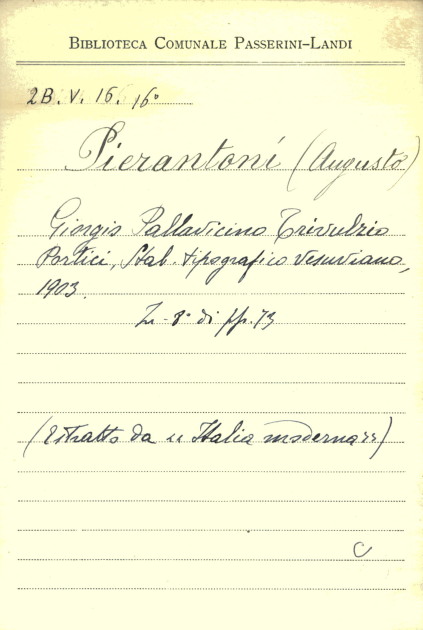 BIBLIOTECA COMUNALE PASSERINI-LANDI
2B. V. 16. 16°
Pierantoni (Augusto)
Giorgio Pallavicino Trivulzio
Portici, Stab. tipografico Vesuviano,
1903.
In-8° di pp. 73
(Estratto da "Italia moderna")
C